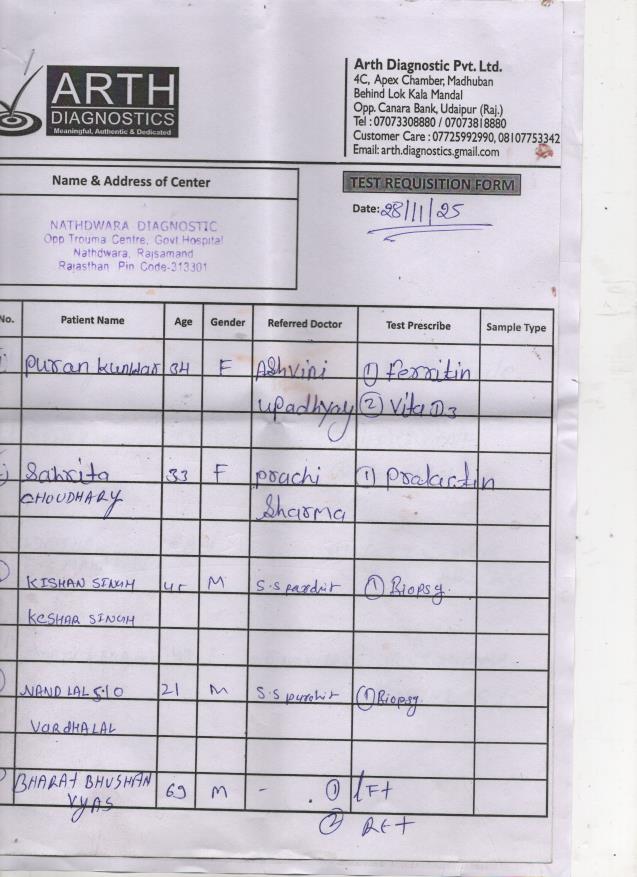 ARTH
DIAGNOSTICS
Meaningful, Authentic & Dedicated
Arth Diagnostic Pvt. Ltd.
4C, Apex Chamber, Madhuban
Behind Lok Kala Mandal
Opp. Canara Bank, Udaipur (Raj.)
Tel : 07073308880 / 07073818880
Customer Care : 07725992990, 08107753342
Email: arth.diagnostics.gmail.com
Name & Address of Center
TEST REQUISITION FORM
Date: 28/11/25
NATHDWARA DIAGNOSTIC
Opp Trouma Centre, Govt Hospital
Nathdwara, Rajsamand
Rajasthan Pin Code-313301
No. Patient Name Age Gender Referred Doctor Test Prescribe Sample Type
Puran Kunwar 34 F Ashvini ① Ferritin
Upadhyay ② Vita D3
33 F Prachi ① Prolactin
CHOUDHARY Sharma
KISHAN SINGH M S.S ① Biopsy.
KESHAR SINGH
NAND LAL S/O 21 M S.S purohit ① Biopsy
VARDHALAL
BHARAT BHUSHAN 69 M - ① LFT
VYAS
② RFT